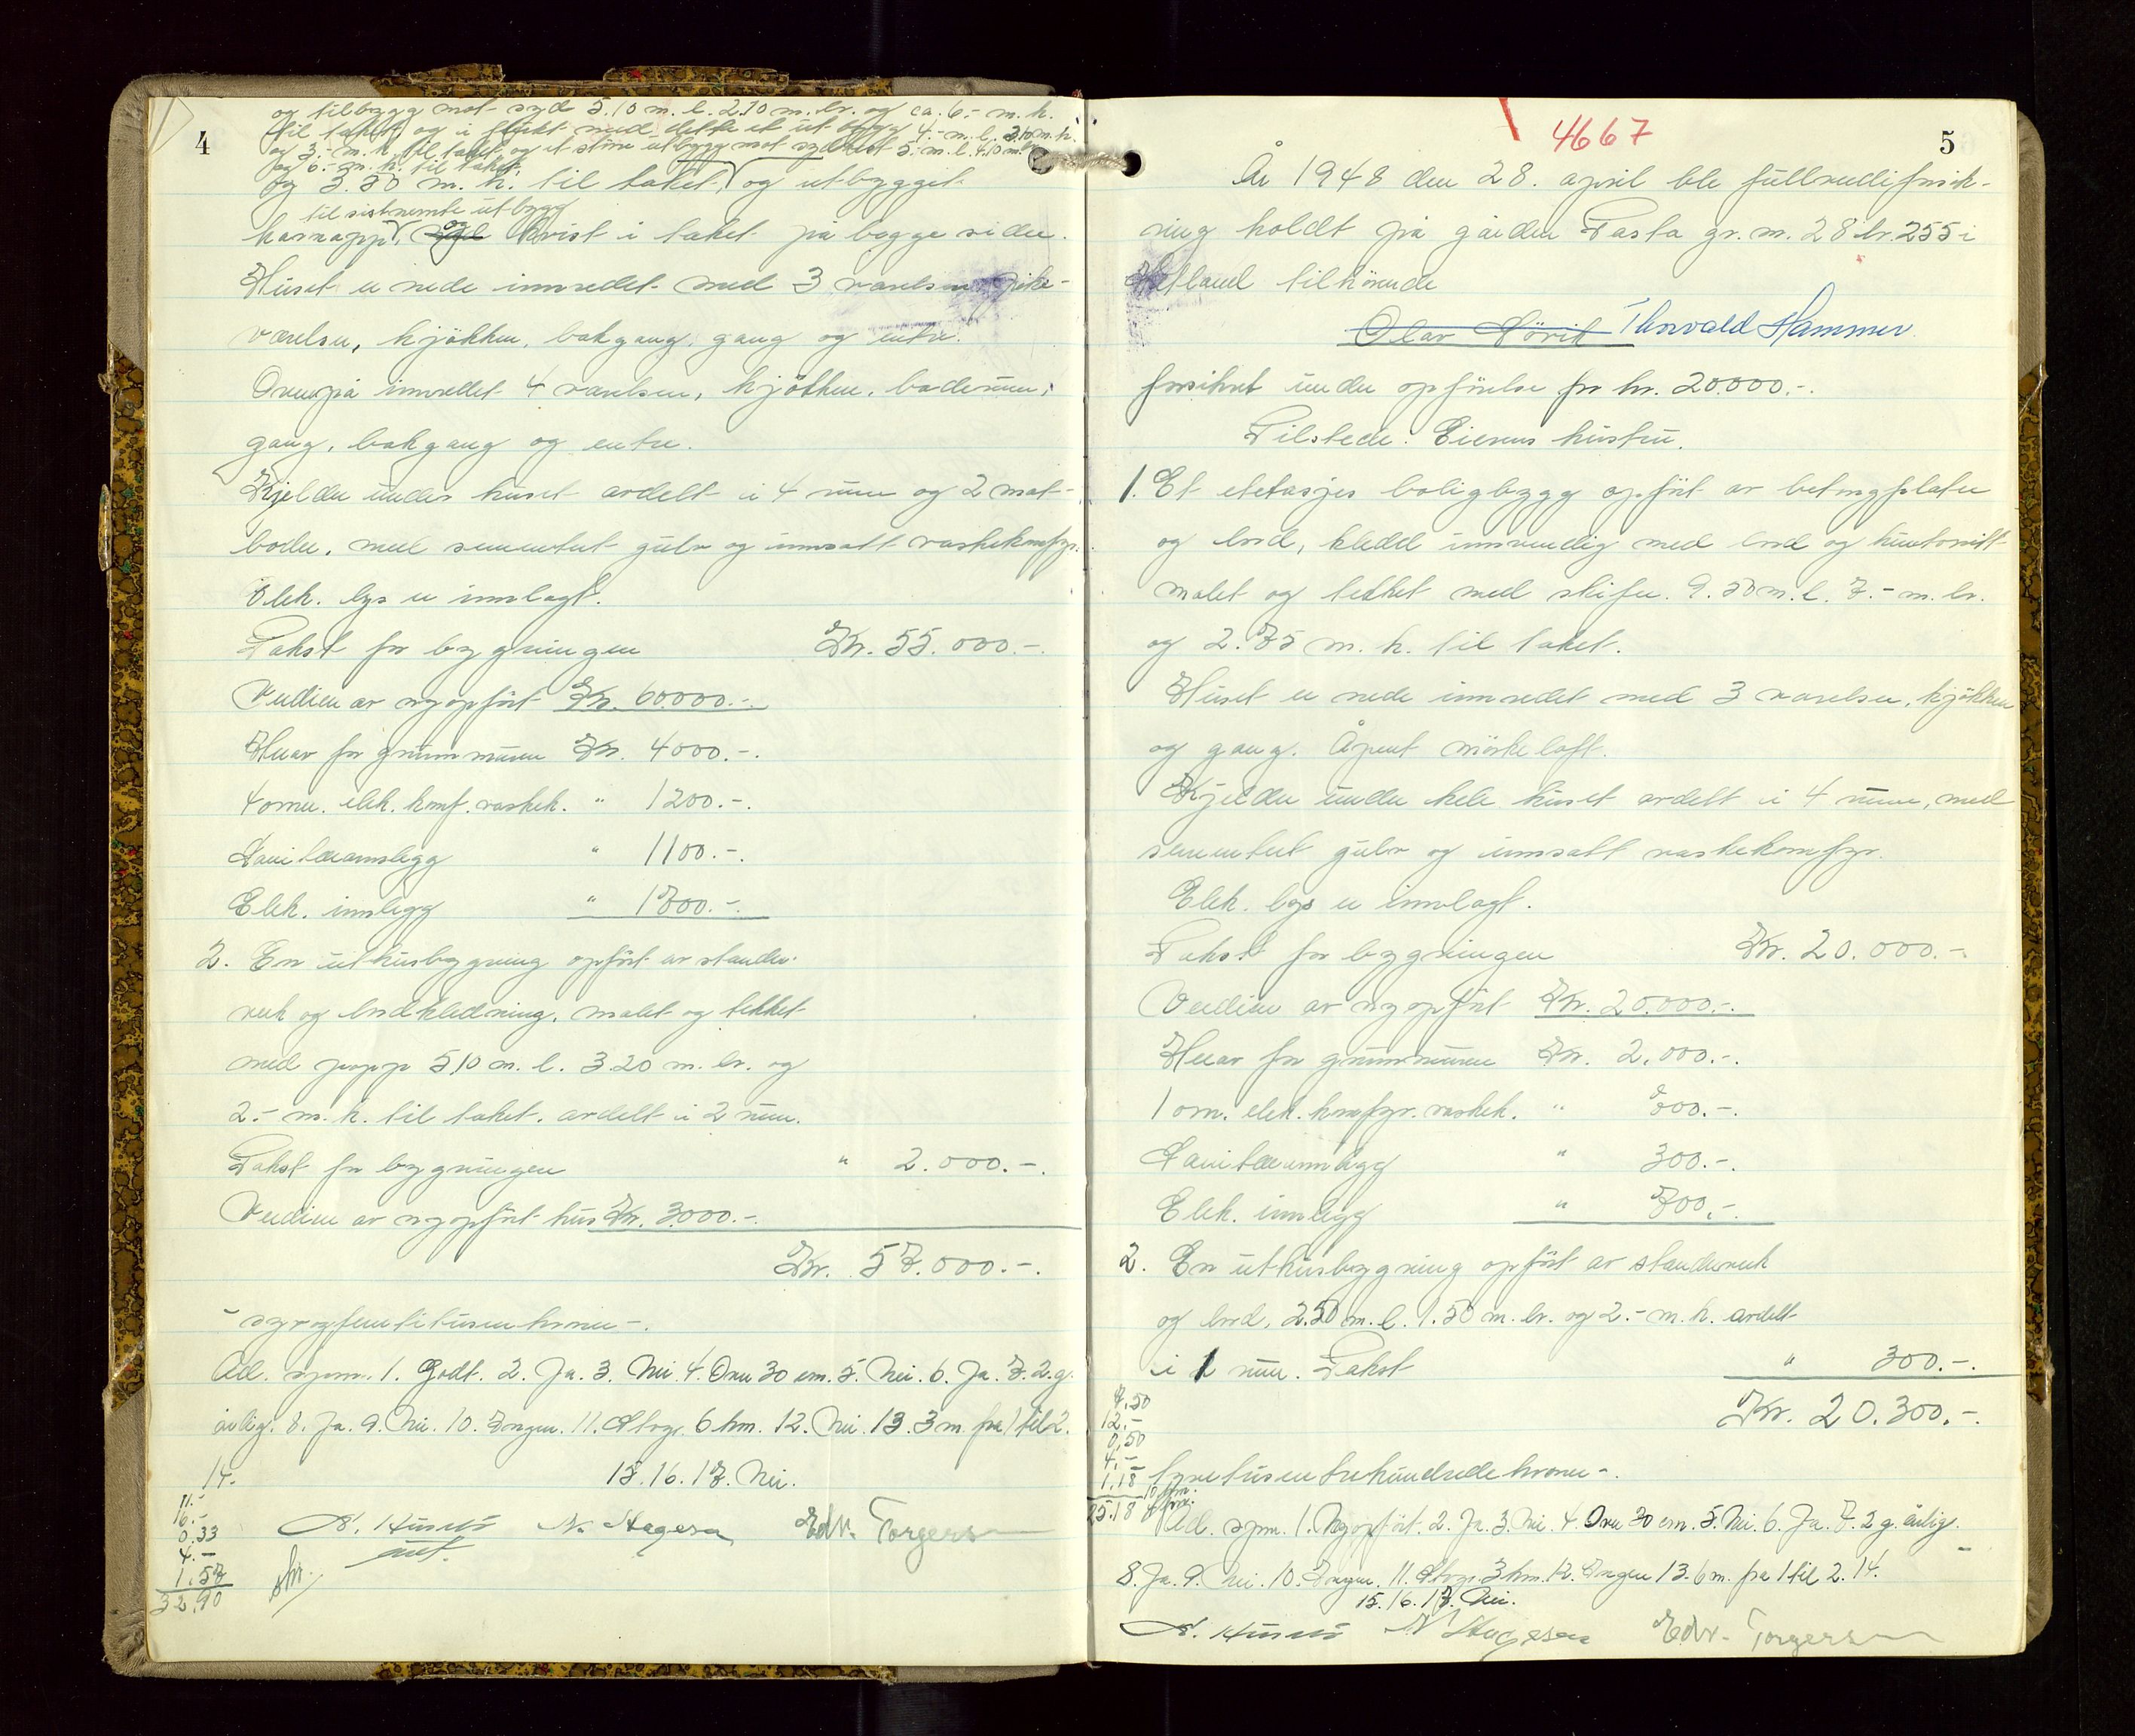 4
og tilbygg mot syd 5.10 m. l. 2.70 m. br. og ca. 6.- m. h.
til taket og i flukt med dette et utbygg 4.- m. l. 3.10 m. h.
og 3.- m. h. til taket og et större utbygg mot sydvest 5.- m. l. 4.10 m. br.
og 6.- m. h. til taket.
og 3.50 m. h. til taket, og utbygget
til sistnemte utbygg
karnapp, og kvist i taket på begge sider.
Huset er nede innredet med 3 værelser, pike-
værelse, kjökken, bakgang, gang og entre.
Ovenpå innredet 4 værelser, kjökken, baderum,
gang, bakgang og entre.
Kjelder under huset avdelt i 4 rum og 2 mat-
boder, med sementert gulv og innsatt vaskekomfyr.
Elek. lys er innlagt.
Takst for bygningen Kr. 55.000.-.
Verdien av nyopfört Kr. 60.000.-.
Herav for grunnmuren Kr. 4000.-.
4 ovner. elek. komf. vaskek. " 1200.-.
Sanitæranlegg " 1100.-.
Elek. innlegg " 1700.-.
2. En uthusbygning opfört av stender-
verk og bordkledning, malet og tekket
med papp 5.10 m. l. 3.20 m. br. og
2.- m. h. til taket. avdelt i 2 rum.
Takst for bygningen " 2.000.-.
Verdien av nyopfört hus Kr. 3000.-.
Kr. 57.000.-.
- syvogfemtitusen kroner -.
Ad. spm. 1. Godt. 2. Ja. 3. Nei. 4. Over 30 cm. 5. Nei. 6. Ja. 7. 2 g.
årlig. 8. Ja. 9. Nei. 10. Ingen. 11. Stvgr. 6 km. 12. Nei. 13. 3 m. fra 1 til 2.
14. 15. 16. 17. Nei.
11.-
16.-
0.33
4.-
1.57
32.90
N. Hagesa Edv. Torgersen
5
4667
År 1948 den 28. april ble fullverdiforsik-
ring holdt på gården Tasta gr. nr. 28 br. 255 i
Hetland tilhörende
Olav Hörik Thorvald Hammer
forsikret under opförelse for kr. 20.000.-.
Tilstede: Eierens hustru.
1. Et etetasjes boligbygg opfört av betongplater
og bord, kledd innvendig med bord og huntonitt
malet og tekket med skifer. 9.50 m. l. 7.- m. br.
og 2.75 m. h. til taket.
Huset er nede innredet med 3 værelser, kjökken
og gang. Åpent mörkeloft.
Kjelder under hele huset avdelt i 4 rum, med
sementert gulv og innsatt vaskekomfyr.
Elek. lys er innlagt.
Takst for bygningen Kr. 20.000.-.
Verdien av nyopfört Kr. 20.000.-.
Herav for grunnmuren Kr. 2.000.-.
1 ovn. elek. komfyr. vaskek. " 800.-.
Sanitærinnlegg " 300.-.
Elek. innlegg " 700.-.
2. En uthusbygning opfört av stenderverk
og bord, 2.50 m. l. 1.50 m. br. og 2.- m. h. avdelt
i 1 rum. Takst " 300.-.
Kr. 20.300.-.
7.50
12.-
0.50
4.-
1.18
25.18
- tyvetusentrehundrede kroner -.
Ad. spm. 1. Nyopfört. 2. Ja. 3. Nei. 4. Over 30 cm. 5. Nei. 6. Ja. 7. 2 g. årlig.
8. Ja. 9. Nei. 10. Ingen. 11. Stvgr. 3 km. 12. Ingen 13. 6 m. fra 1 til 2. 14.
15. 16. 17. Nei.
N Hagesa Edv. Torgersen